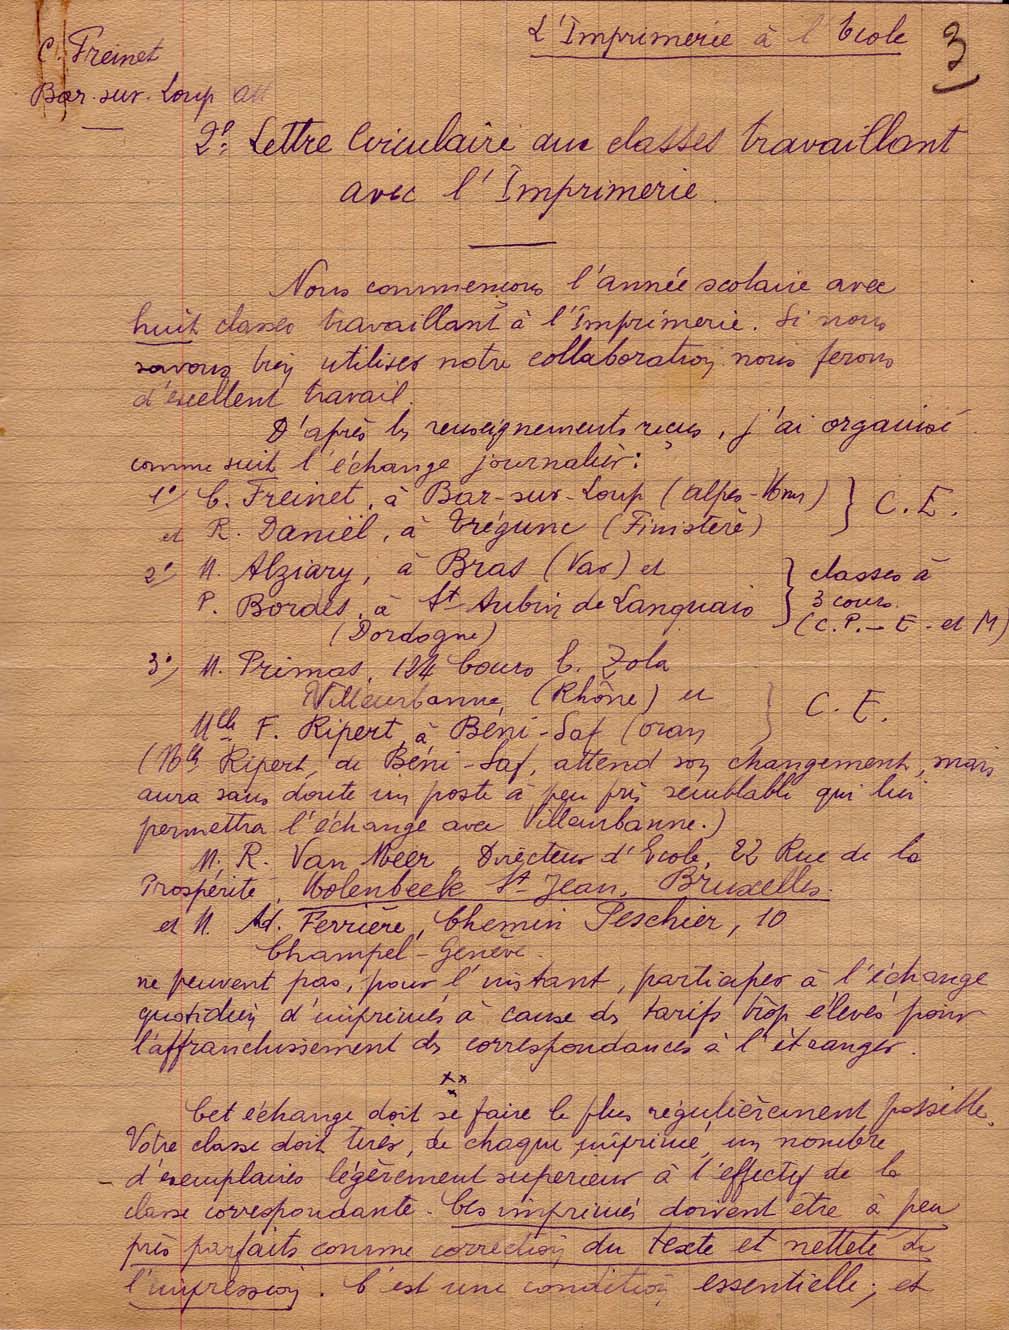 C. Freinet
L'Imprimerie à l'Ecole
3
Bar-sur-Loup AM
2e Lettre Circulaire aux classes travaillant
avec l'Imprimerie.
Nous commençons l'année scolaire avec
huit classes travaillant à l'Imprimerie. Si nous
savons bien utiliser notre collaboration nous ferons
d'excellent travail.
D'après les renseignements reçus, j'ai organisé
comme suit l'échange journalier:
1º C. Freinet, à Bar-sur-Loup (Alpes-Mmes) } C.E.
et R. Daniël, à Trégunc (Finistère)
2º M. Alziary, à Bras (Var) et } classes à
P. Bordes, à St Aubin de Lanquais 3 cours
(Dordogne) (C.P. - E - et M)
3º M. Primas, 124 Cours E. Zola
Villeurbanne (Rhône) et } C.E.
Mlle F. Ripert, à Béni-Saf (Oran
(Mlle Ripert, de Béni-Saf, attend son changement, mais
aura sans doute un poste à peu près semblable qui lui
permettra l'échange avec Villeurbanne.)
M. R. Van Meer, Directeur d'Ecole, 22 Rue de la
Prospérité, Molenbeek St Jean, Bruxelles.
et M. Ad. Ferrière, Chemin Peschier, 10
Champel-Genève.
ne peuvent pas, pour l'instant, participer à l'échange
quotidien d'imprimés à cause des tarifs trop élevés pour
l'affranchissement des correspondances à l'étranger.
Cet échange doit se faire le plus régulièrement possible.
Votre classe doit tirer, de chaque imprimé, un nombre
d'exemplaires légèrement supérieur à l'effectif de la
classe correspondante. Ces imprimés doivent être à peu
près parfaits comme correction du texte et netteté de
l'impression. C'est une condition essentielle; et